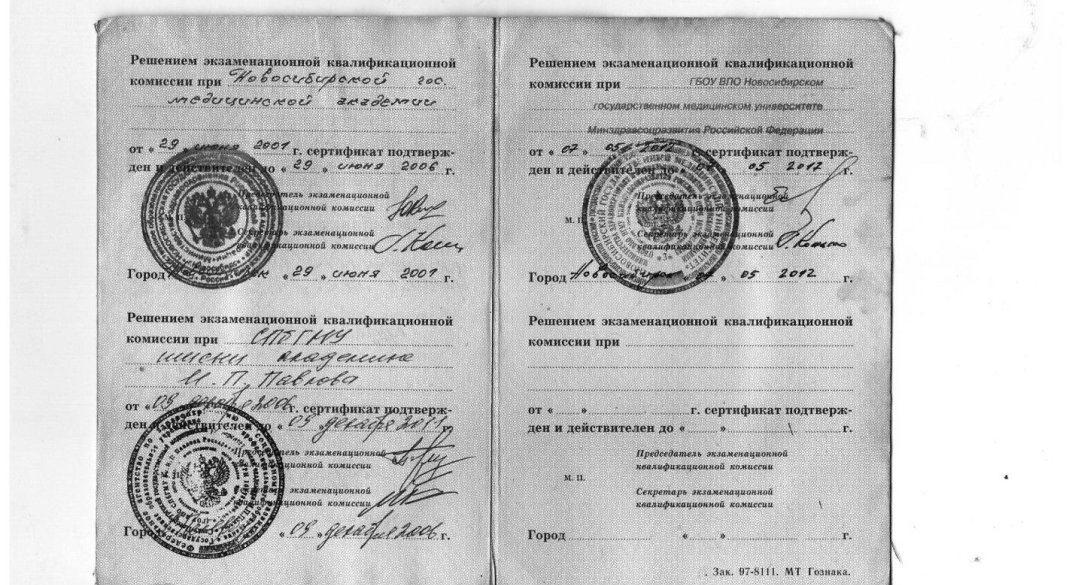 Решением экзаменационной квалификационной
комиссии при Новосибирской гос.
медицинской академии
от « 29 » июня 2001 г. сертификат подтверж-
ден и действителен до « 29 » июня 2006 г.
Председатель экзаменационной
квалификационной комиссии
М. П.
Секретарь экзаменационной
квалификационной комиссии
Город « 29 » июня 2001 г.
Решением экзаменационной квалификационной
комиссии при СПбГМУ
имени академика
И. П. Павлова
от « 09 декабря 2006 г. сертификат подтверж-
ден и действителен до « 09 декабря 2011 г.
Председатель экзаменационной
квалификационной комиссии
Секретарь экзаменационной
квалификационной комиссии
Город « 09 » декабря 2006 г.
Решением экзаменационной квалификационной
комиссии при ГБОУ ВПО Новосибирском
государственном медицинском университете
Минздравсоцразвития Российской Федерации
от « 07 » 05 2012 г. сертификат подтверж-
ден и действителен до « 07 » 05 2017 г.
Председатель экзаменационной
квалификационной комиссии
М. П.
Секретарь экзаменационной
квалификационной комиссии
Город Новосибирск « 07 » 05 2012 г.
Решением экзаменационной квалификационной
комиссии при
от « » г. сертификат подтверж-
ден и действителен до « » г.
Председатель экзаменационной
квалификационной комиссии
М. П.
Секретарь экзаменационной
квалификационной комиссии
Город « » г.
Зак. 97-8111. МТ Гознака.